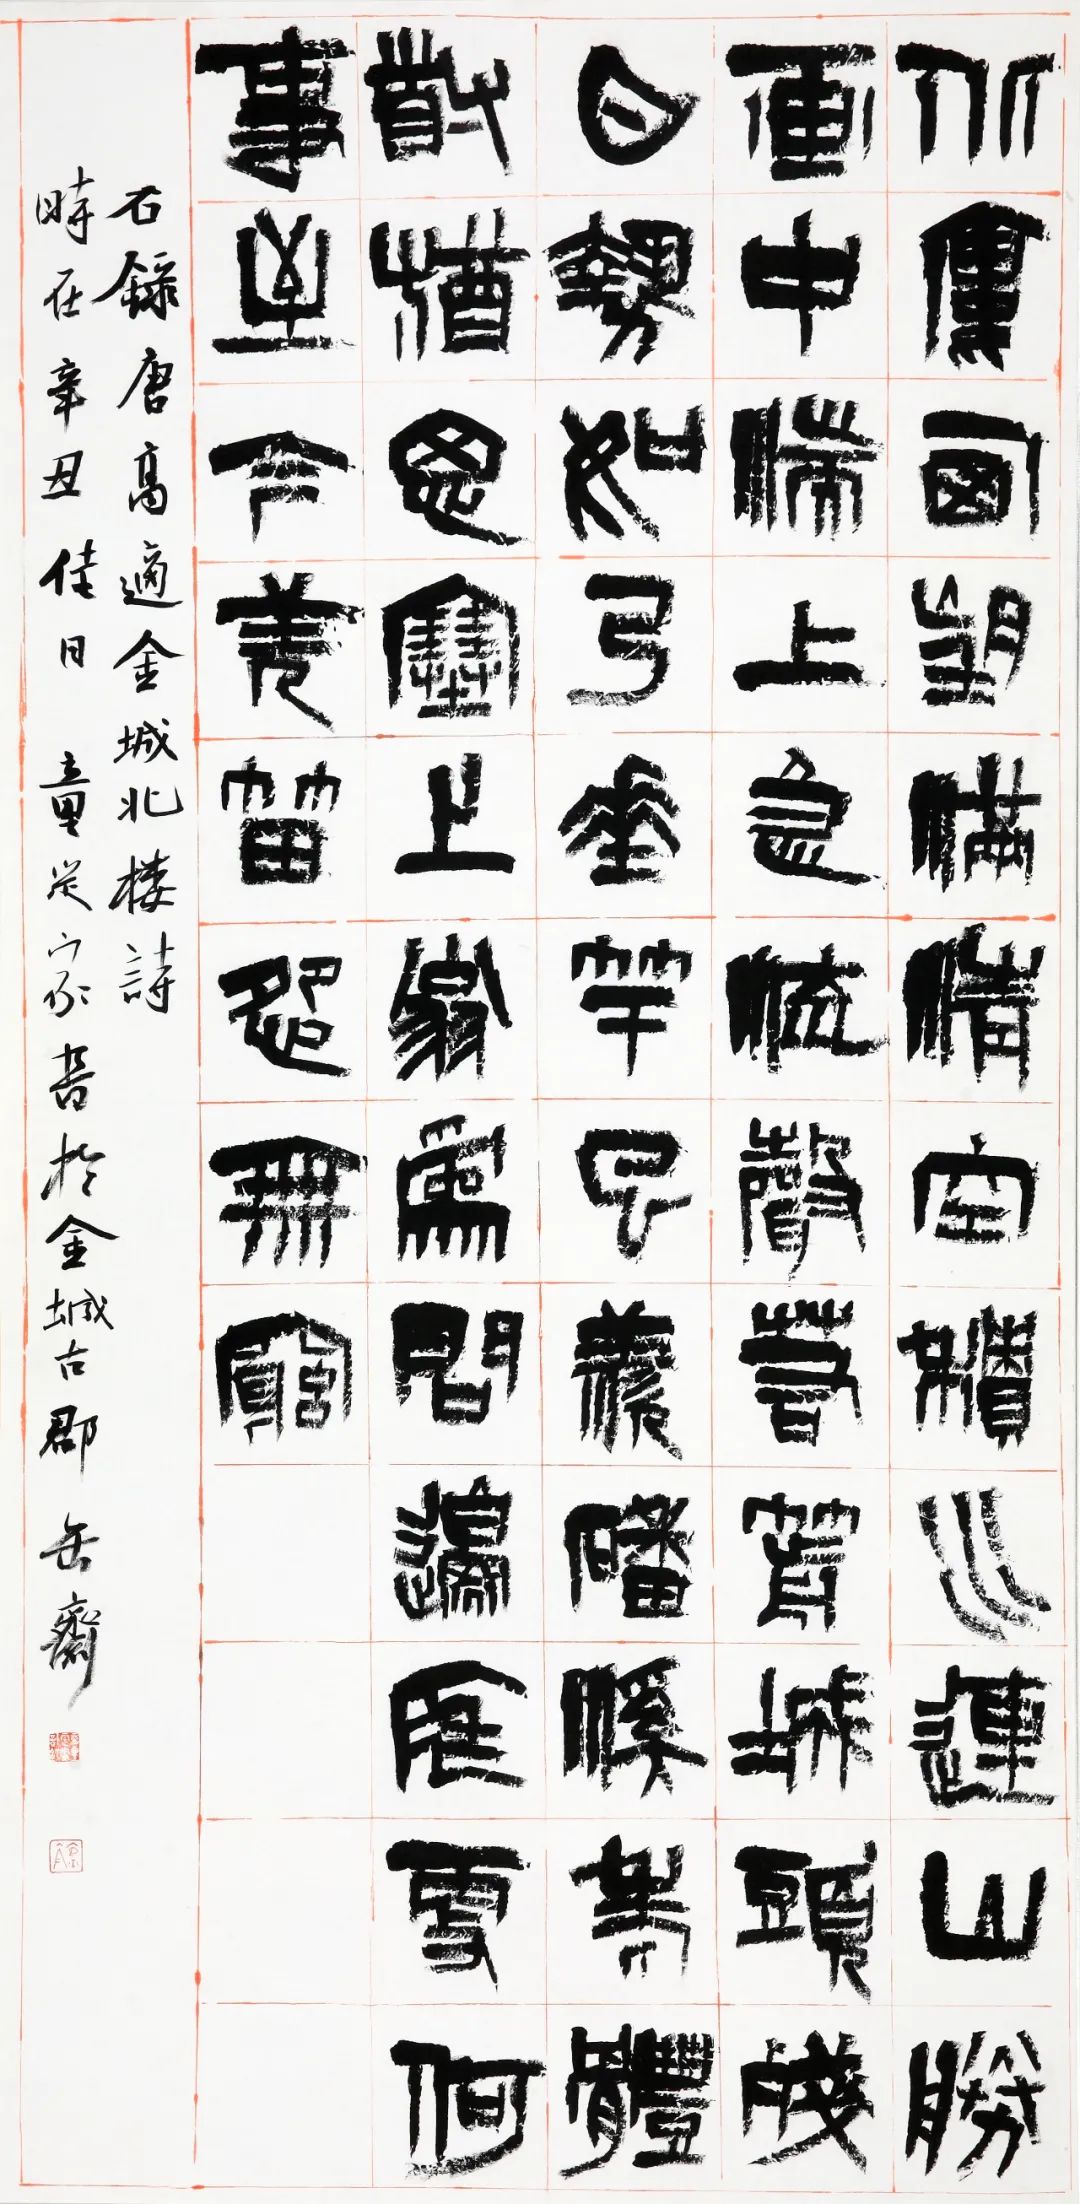 北樓西望滿晴空積水連山勝
畫中湍上急流聲若箭城頭殘
月勢如弓垂竿已羨磻溪老體
道猶思塞上翁為問邊庭更何
事至今羌笛怨無窮
右錄唐高適金城北樓詩
時在辛丑佳日 童 家書於金城古郡 齋